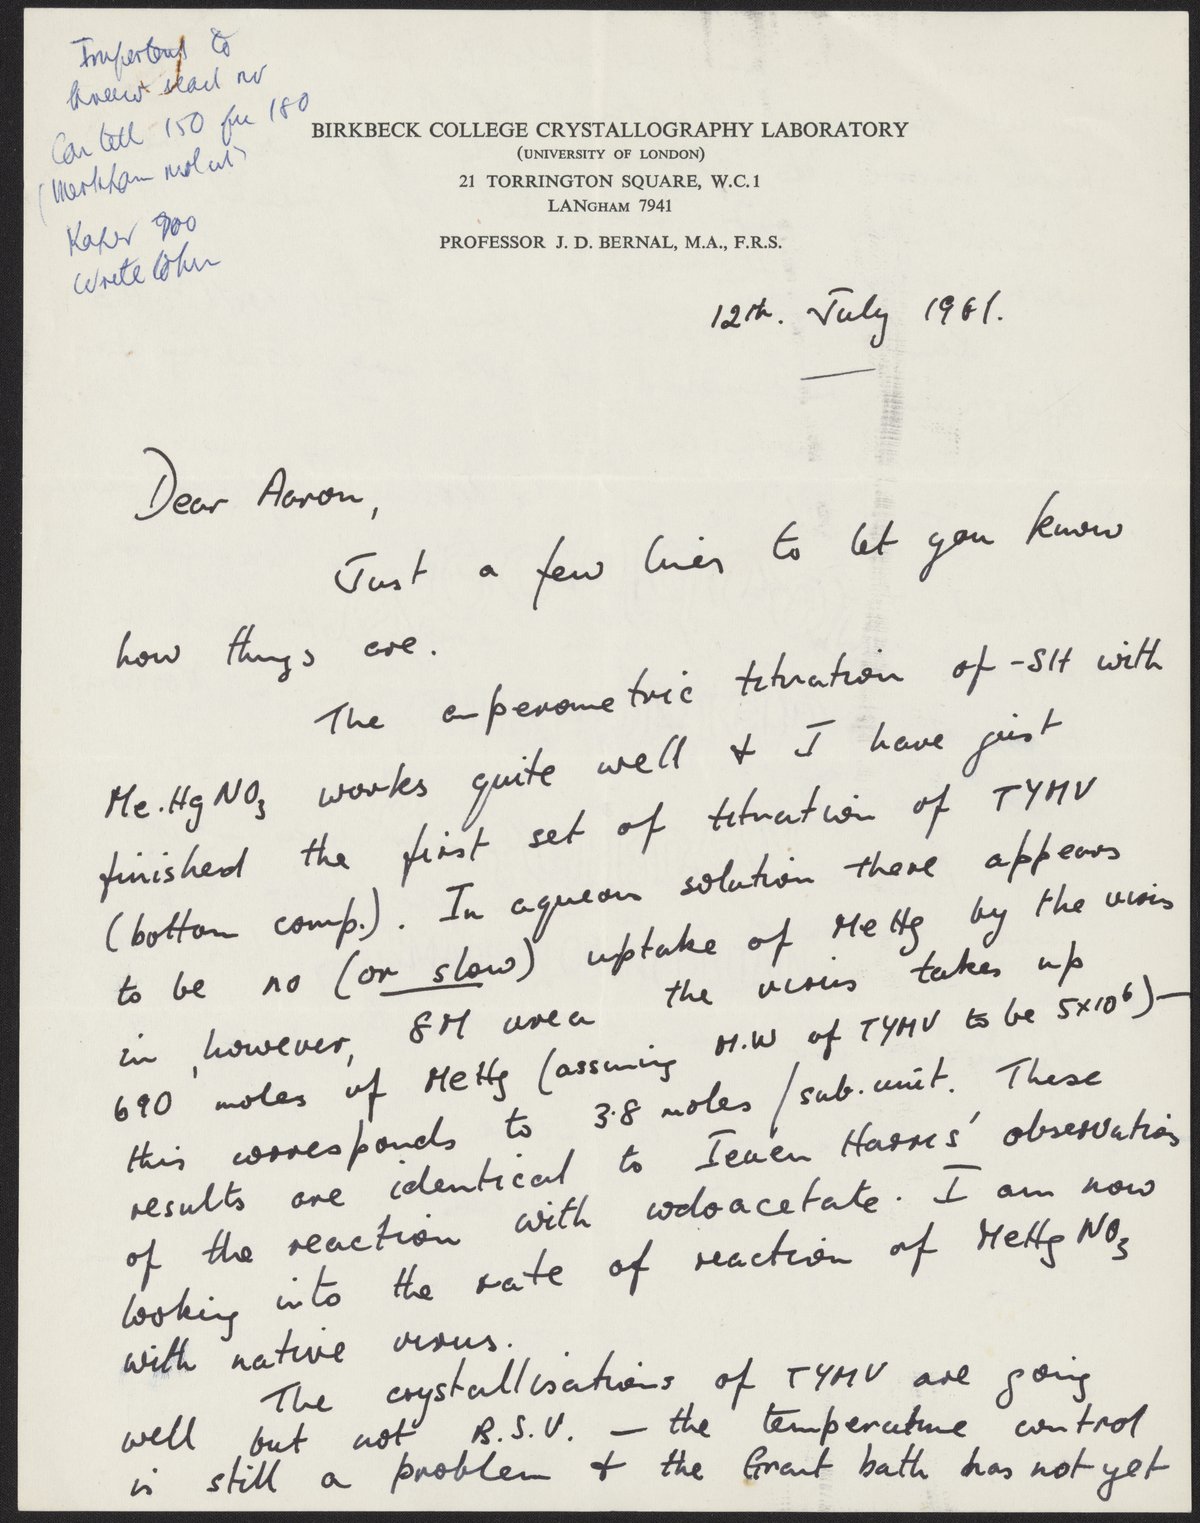 Important to
know
Can tell 150 from 180
(Markham mol wt)
Kaper 900
write Cohn
BIRKBECK COLLEGE CRYSTALLOGRAPHY LABORATORY
(UNIVERSITY OF LONDON)
21 TORRINGTON SQUARE, W.C.1
LANGHAM 7941
PROFESSOR J. D. BERNAL, M.A., F.R.S.
12th. July 1961.
Dear Aaron,
Just a few lines to let you know
how things are.
The amperometric titration of -SH with
Me.HgNO3 works quite well & I have just
finished the first set of titration of TYMV
(bottom comp.). In aqueous solution there appears
to be no (or slow) uptake of MeHg by the virus
in, however, 8M urea the virus takes up
690 moles of MeHg (assuming M.W of TYMV to be 5x10⁶) —
this corresponds to 3.8 moles/sub.unit. These
results are identical to Ieuen Harris' observations
of the reaction with iodoacetate. I am now
looking into the rate of reaction of MeHgNO3
with native virus.
The crystallisations of TYMV are going
well but not B.S.V. — the temperature control
is still a problem & the Grant bath has not yet